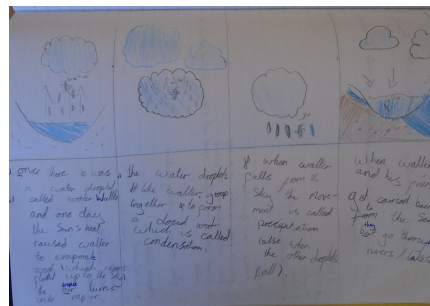 once there was
a water droplet
called Waller
and one day
the Sun's heat
caused waller
to evaporate
which
up to the sky
turns
into vapor.
the water droplets
like waller, group
together to form
a cloud
which is called
condensation.
when waller
falls from the
sky the move-
ment is called
precipitation
(also when
the other droplets
fall).
When waller
and his
got carried back
to
from the sea
they
go through
rivers / lakes